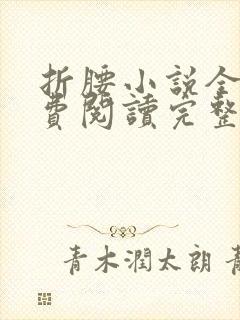 折腰小説全
費閱讀完整
青木潤太朗